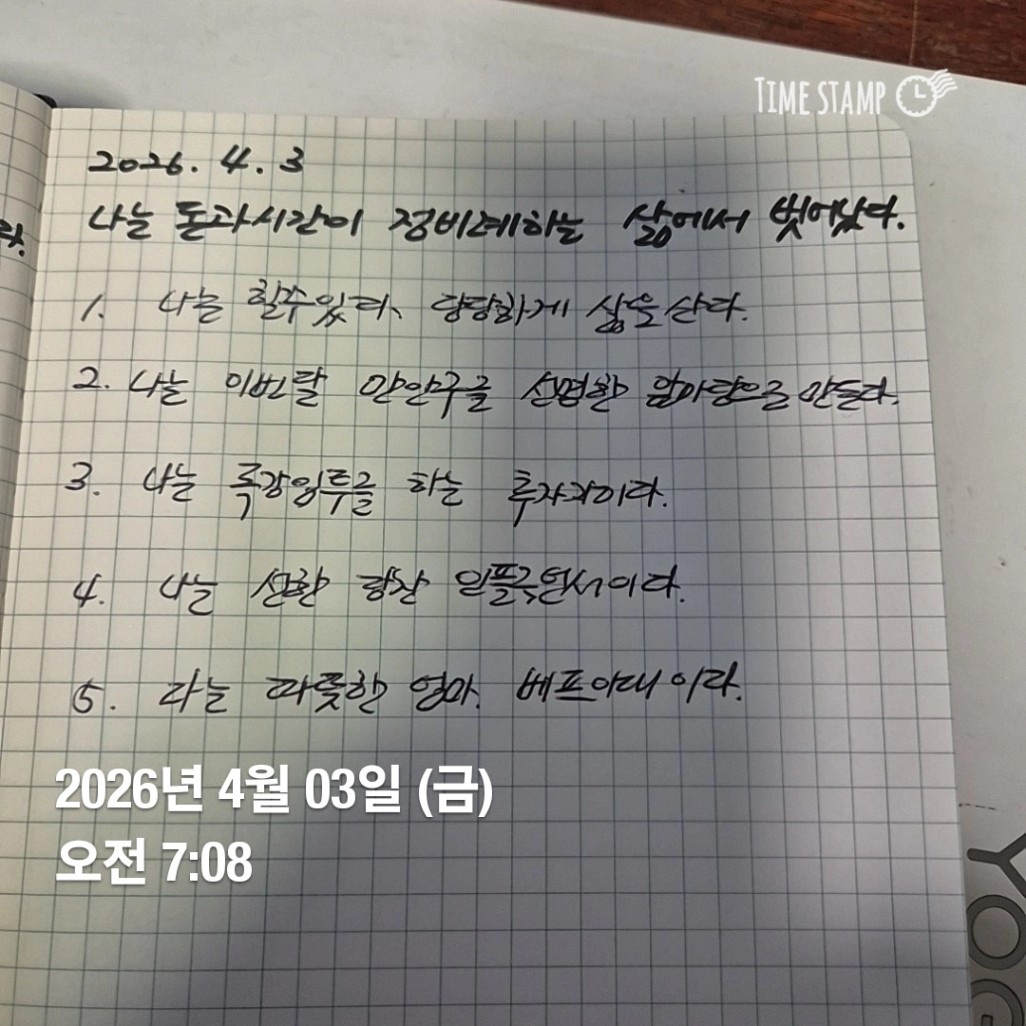 TIME STAMP
2026. 4. 3
나는 돈과시간이 정비례하는 삶에서 벗어났다.
1. 나는 할수있다, 당당하게 삶을 산다.
2. 나는 이번달 만안구를 선명한 앞마당으로 만든다.
3. 나는 독강임투를 하는 투자자이다.
4. 나는 선한 인플루언서이다.
5. 나는 따뜻한 엄마. 베프아내이다.
2026년 4월 03일 (금)
오전 7:08
YOG